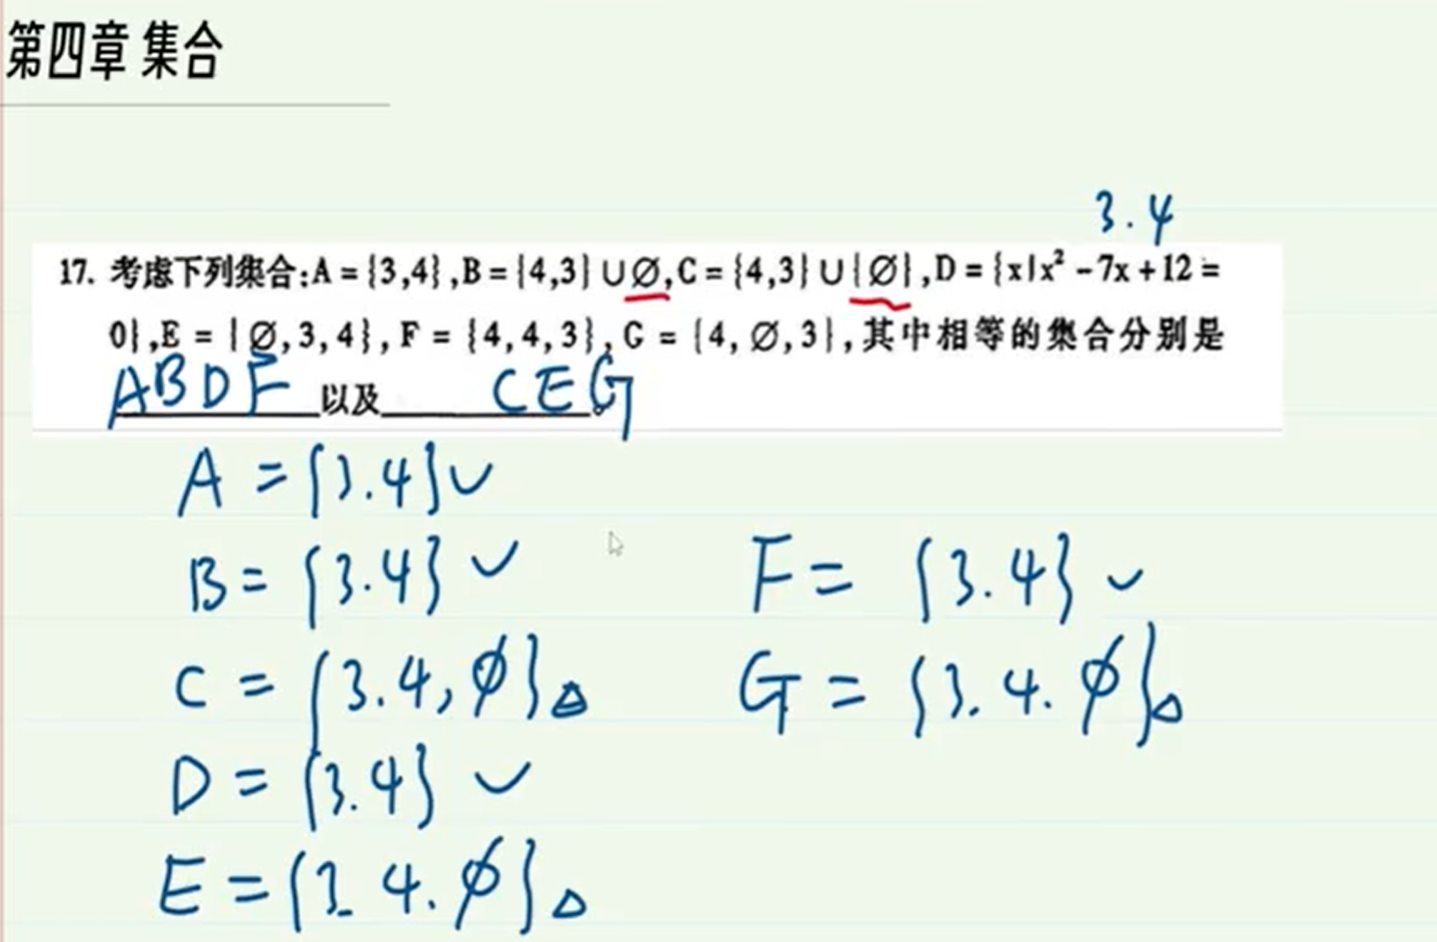 第四章 集合
3.4
17. 考虑下列集合:A = {3,4},B = {4,3} ∪ ∅,C = {4,3} ∪ {∅},D = {x|x² - 7x + 12 =
0},E = {∅,3,4}, F = {4,4,3}, G = {4, ∅,3},其中相等的集合分别是
ABDF 以及 CEG。
A = {3.4} ✓
B = {3.4} ✓
F = {3.4} ✓
C = {3.4, ∅} △
G = {3.4. ∅} △
D = {3.4} ✓
E = {3 4. ∅} △